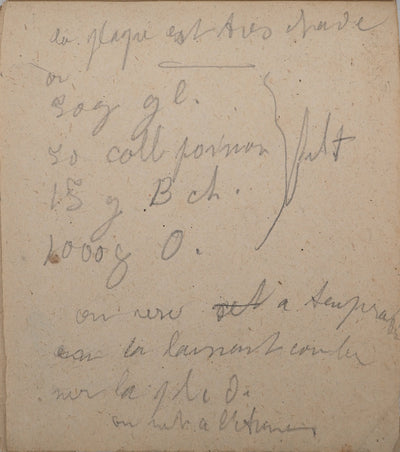 la plaque est très chaude
ou
50g gl.
50 coll poisson
15 g B ch. filt
1000g O.
on verse a temp
en la laissant couler
sur la pl. d.
on met a l'étuve